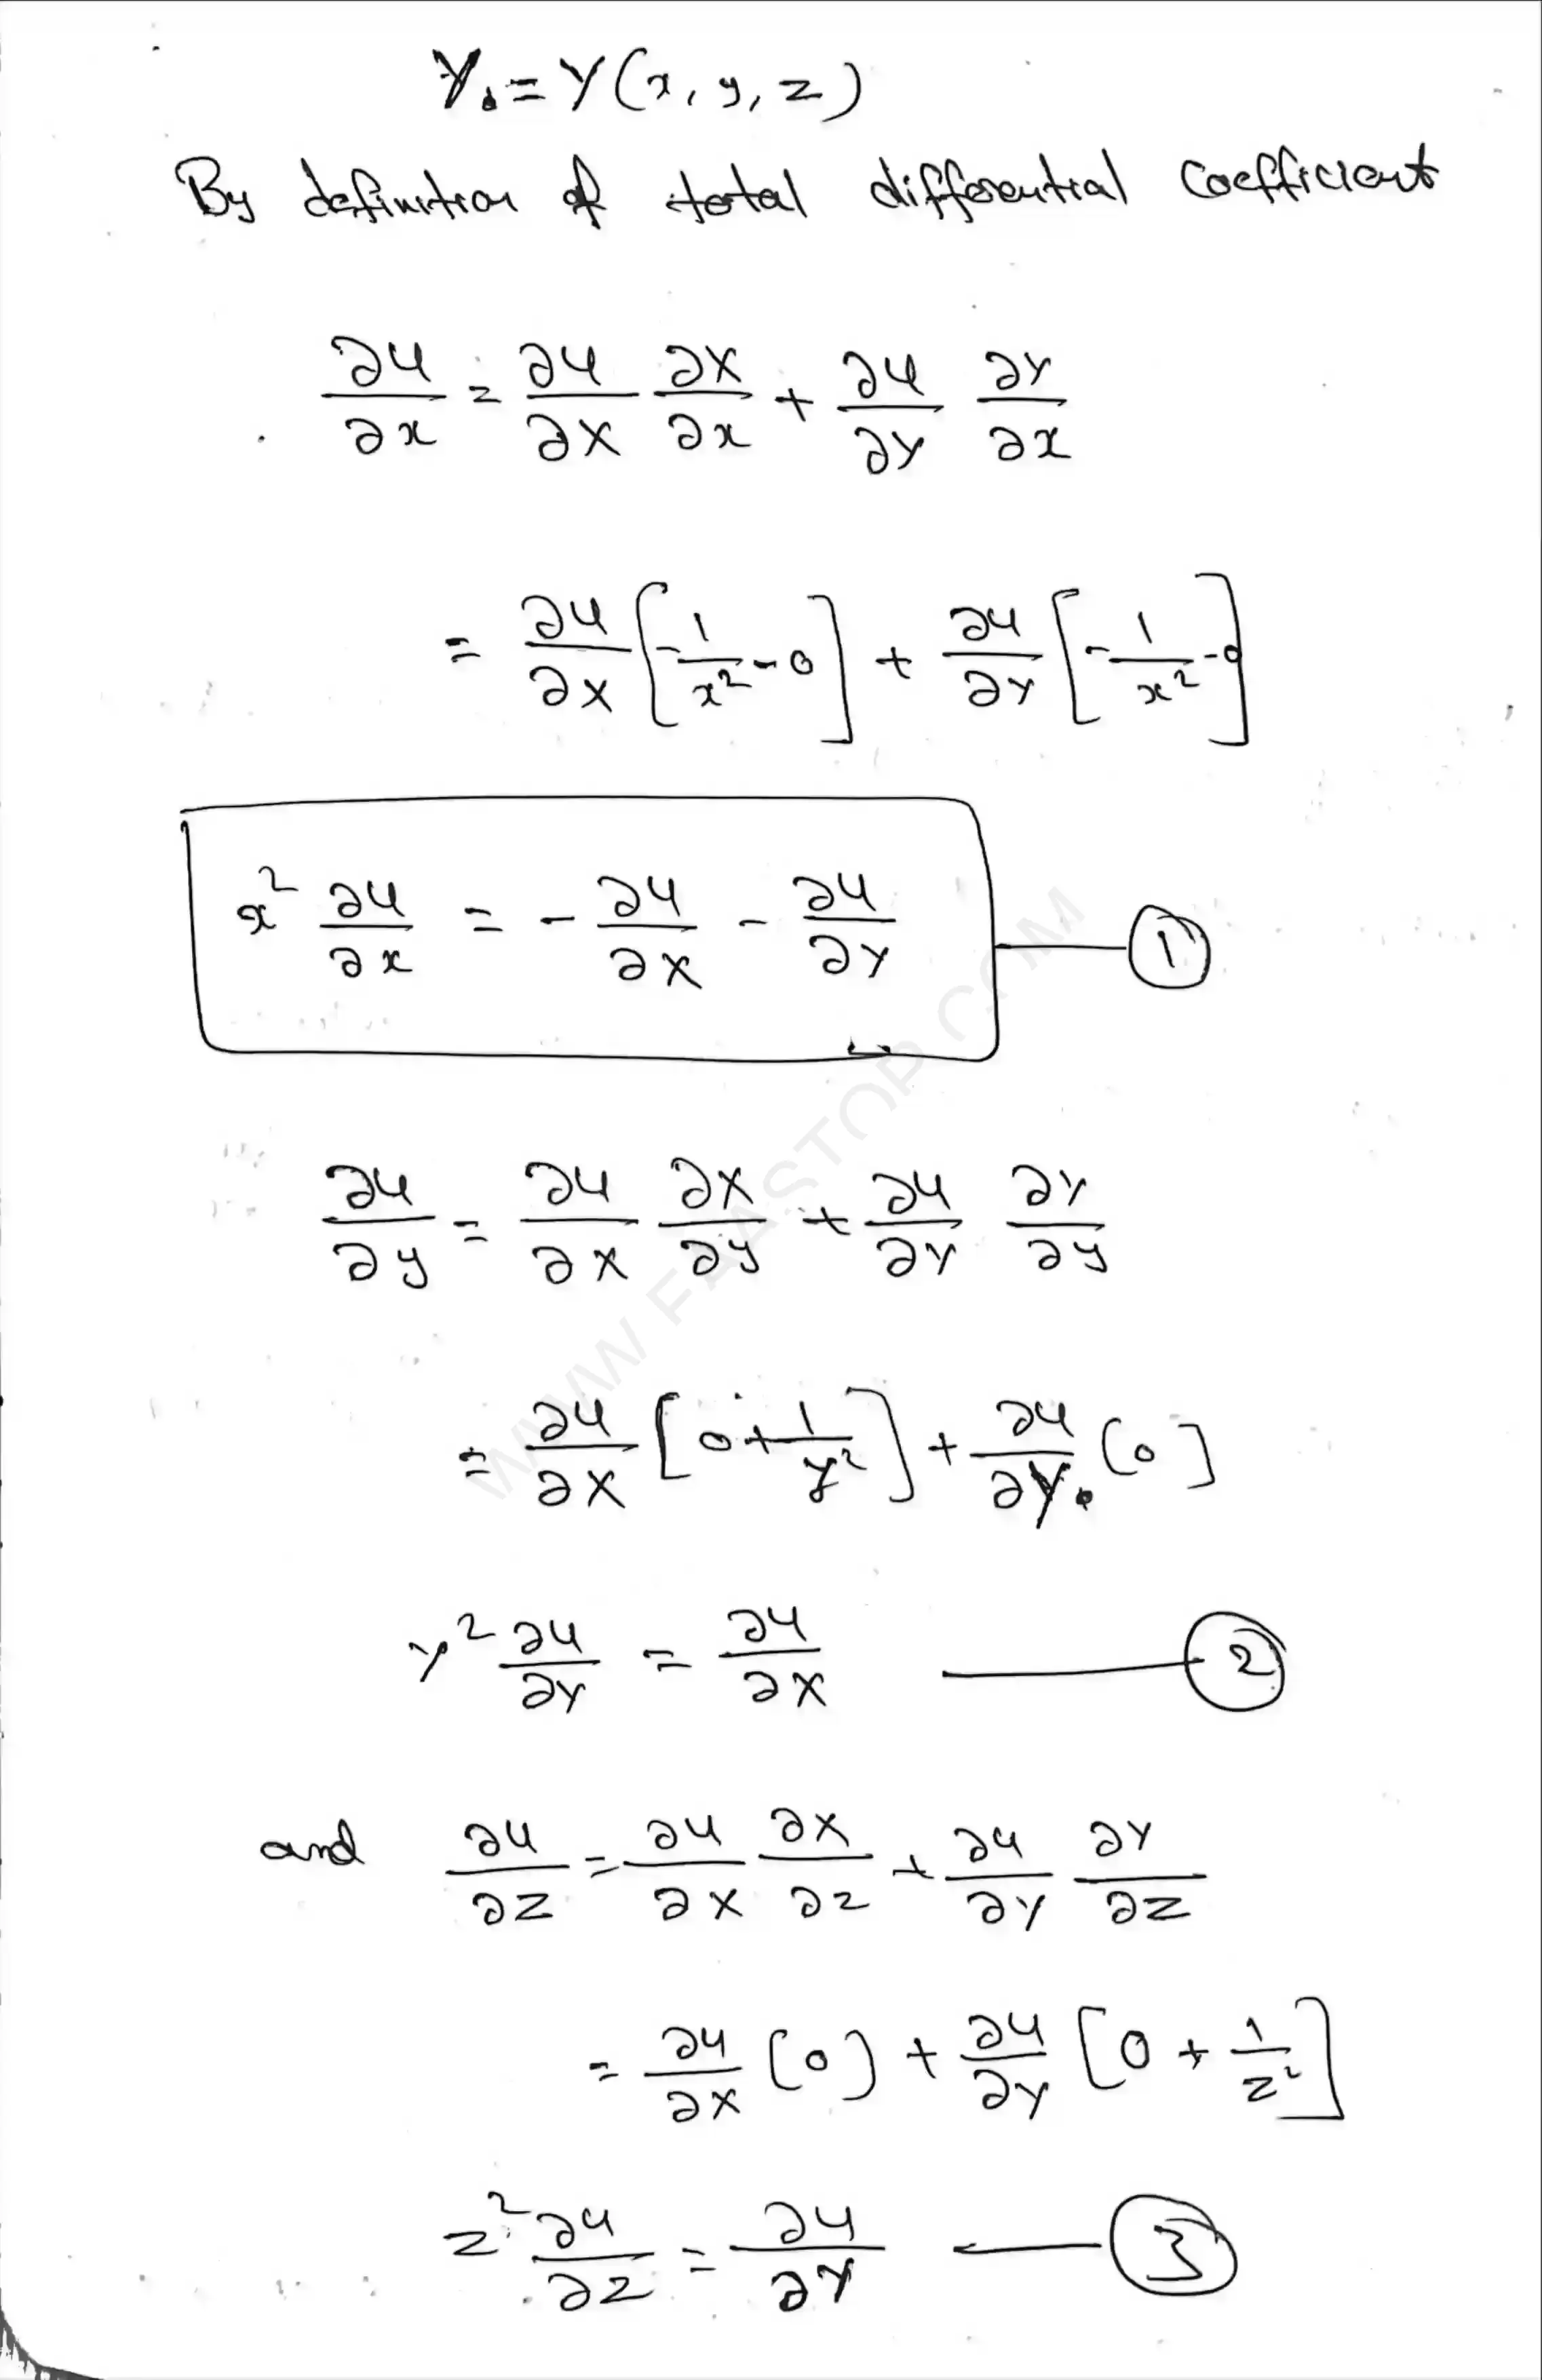 Y = Y(x, y, z)
By definition of total differential coefficient
∂u/∂x = ∂u/∂X ∂X/∂x + ∂u/∂Y ∂Y/∂x
= ∂u/∂X [-1/x² - 0] + ∂u/∂Y [-1/x² - 0]
x² ∂u/∂x = - ∂u/∂X - ∂u/∂Y —— ①
∂u/∂y = ∂u/∂X ∂X/∂y + ∂u/∂Y ∂Y/∂y
= ∂u/∂X [0 + 1/y²] + ∂u/∂Y (0]
Y² ∂u/∂Y = ∂u/∂X —— ②
and ∂u/∂z = ∂u/∂X ∂X/∂z + ∂u/∂Y ∂Y/∂z
= ∂u/∂X (0) + ∂u/∂Y [0 + 1/z²]
z² ∂u/∂z = ∂u/∂Y —— ③
WWW.FAASTOP.COM